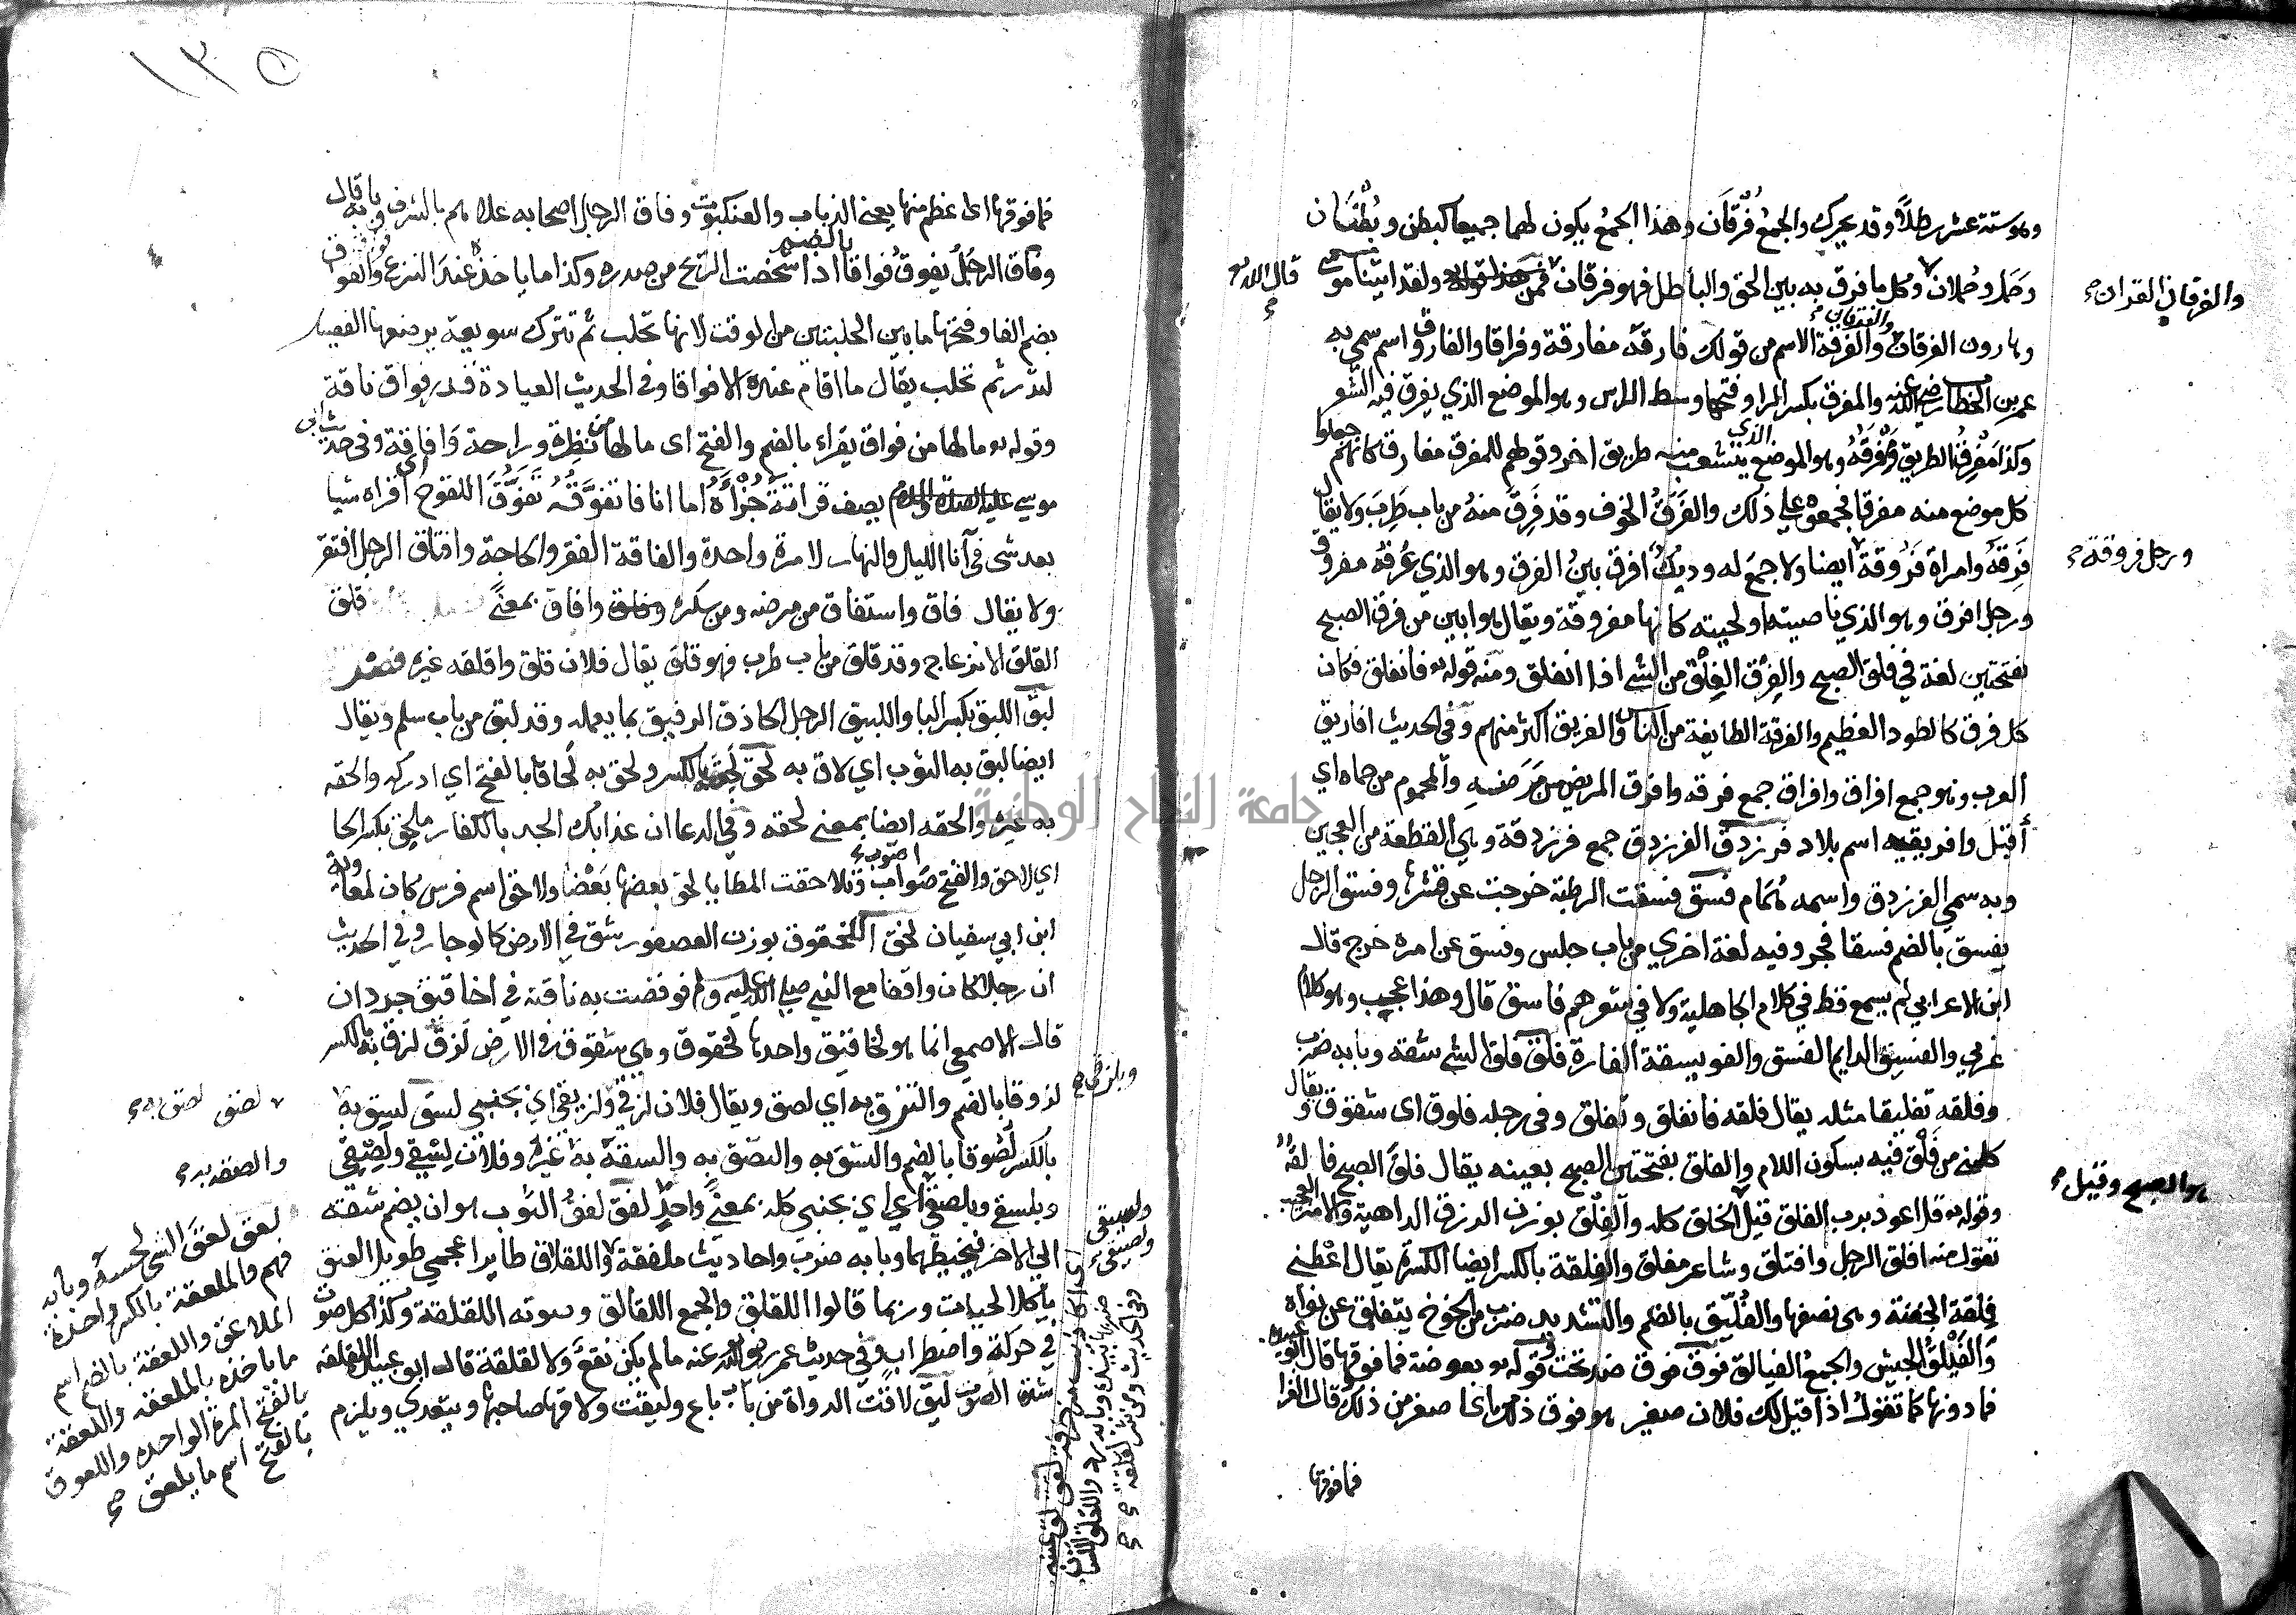 وهو ستة عشر رطلا وقد يحرك والجمع فُرْقَان وهذا الجمع يكون لهما جميعا كبطن وبُطْنَان
وحَمَل وحُملان وكل ما فرق به بين الحق والباطل فهو فرقان ولقد اتينا موسى
قال الله تع
والفرقان القران صح
وهارون الفرقان والفرقة الاسم من قولك فارقه مفارقة وفراقا والفاروق اسم سمي به
عمر بن الخطاب رضي الله عنه والمفرق بكسر الراء وفتحها وسط الراس وهو الموضع الذي يفرق فيه الشعر
وكذا مَفرِق الطريق ومَفرَقه وهو الموضع الذي يتشعب منه طريق اخر وقولهم للمفرق مفارق كانهم جعلوا
كل موضع منه مفرقا فجمعوه على ذلك والفَرَق الخوف وقد فَرِقَ منه من باب طَرِبَ ولا يقال
فَرِقَهُ وامراة فَرُوقة ايضا ولا جمع له وديك افرق بين الفرق وهو الذي عُرْفه مفروق
ورجل فروقة صح
ورجل افرق وهو الذي ناصيته او لحيته كانها مفروقة ويقال هو ابين من فرق الصبح
بفتحتين لغة في فلق الصبح والفِرْق الفِلْق من الشي اذا انفلق ومنه قوله تع فانفلق فكان
كل فرق كالطود العظيم والفرقة الطايفة من الناس والفريق اكثر منهم وفي الحديث افاريق
العرب وهو جمع افراق وافراق جمع فرقه وافرق المريض من مَرَضِه والمحموم من حماه اي
أقبل وافريقيه اسم بلاد فرزدق الفرزدق جمع فرزدقة وهي القطعة من العجين
وبه سمي الفرزدق واسمه هُمَام فسق فسقت الرطبة خرجت عن قشرها وفسق الرجل
يفسق بالضم فسقا فجر وفيه لغة اخري من باب جلس وفسق عن امره خرج قال
ابن الاعرابي لم يسمع قط في كلام الجاهلية ولا في شعرهم فاسق قال وهذا عجيب وهو كلام
عربي والفسيق الدايم الفسق والفويسقة الفارة فلق فلق الشي شقه وبابه ضرب
وفلقه تفليقا مثله يقال فلقه فانفلق وتفلق وفي رجله فلوق اى شقوق ويقال
كلمني من فَلْق فيه بسكون اللام والفلق بفتحتين الصبح بعينه يقال فلق الصبح فالقه
وقوله تع قل اعوذ برب الفلق قيل الخلق كله والفِلْق بوزن الرزق الداهية والامر العجب
هو الصبح وقيل صح
تقول منه افلق الرجل وافتلق وشاعر مفلق والفلقة بالكسر ايضا الكسرة يقال اعطني
فِلقة الجفنة وهي نصفها والفُلَّيق بالضم والتشديد ضرب من الخوخ يتفلق عن نواه
والفَيْلق الجيش والجمع الفيالق فوق فوق ضد تحت وقوله تع بعوضة فما فوقها قال ابو عبيدة
فما دونها كما تقول اذا قيل لك فلان صغير هو فوق ذلك اى اصغر من ذلك قال الفرا
فما فوقها
١٣٥
فما فوقها اى اعظم منها يعني الذباب والعنكبوت وفاق الرجل اصحابه علاهم بالشرف وبابه قال
وفاق الرجُلُ يفوقُ فُواقا بالضم اذا شخصت الريح من صدره وكذا ما ياخذه عند النزع والفواق
بضم الفا وفتحها ما بين الحلبتين من الوقت لانها تحلب ثم تترك سويعة يرضعها الفصيل
لتدر ثم تحلب يقال ما اقام عنده الا فواقا وفي الحديث العيادة قدر فواق ناقة
وقوله تع ما لها من فواق يقراء بالضم والفتح اى ما لها من نَظِرة وراحة وافاقة وفي حديث ابي
موسي يصف قراته جُزْأَهُ اما انا فاتفوَّقُهُ تَفَوُّقَ اللقوح اى اقراه شيا
بعد شى في آنا الليل والنهار لا مرة واحدة والفاقة الفقر والحاجة وافتاق الرجل افتقر
ولا يقال فاق واستفاق من مرضه ومن سكره وافاق بمعنًى قلق
القلق الانزعاج وقد قلق من باب طرب فهو قلق يقال فلان قلق واقلقه غيره
لبق اللبق بكسر البا واللبيق الرجل الحاذق الرفيق بما يعمله وقد لبق من باب سلم ويقال
ايضا لبق به الثوب اي لاق به لحق لحقه بالكسر ولحق به لَحَاقا بالفتح اي ادركه والحقه
به غيره والحقه ايضا بمعني لحقه وفي الدعا ان عذابك الجد بالكفار ملحق بكسر الحا
اي لاحق والفتح صواب وتلاحقت المطايا لحق بعضها بعضا ولاحق اسم فرس كان لمعاوية
ابن ابي سفيان لخق اللخقوق بوزن العصفور شق في الارض كالوجار وفي الحديث
ان رجلا كان واقفا مع النبي صلي الله عليه وسلم فوقصت به ناقته في اخاقيق جرذان
قال الاصمعي انما هو لخاقيق واحدها لخقوق وهي شقوق في الارض لزق لزق به بالكسر
لزوقا بالضم والتزق به اي لصق ويقال فلان لزقي ولزيقي اي بجنبي لسق لسق به
وبلزقي صح
لصق لصق به صح
بالكسر لُصُوقا بالضم والتسق به والتصق به والسقه به غيره وفلان لِسْقي ولِصْقي
والصقه به صح
وبلسقي وبلصقي اي بجنبي كله بمعنًى واحد لفق لفق الثوب هو ان يضم شقة
ولسيقي ولصيقي صح
الى الاخرى فيخيطهما وبابه ضرب واحاديث ملفقة واللقلاق طايرا عجمي طويل العنق
ياكل الحيات وربما قالوا اللقلق والجمع اللقالق وصوته اللقلقة وكذا كل صوت
في حركة واضطراب وفي حديث عمر رضي الله عنه ما لم يكن نقع ولا لقلقة قال ابو عبيد اللقلقه
شدة الصوت ليق لاقت الدواة من باب باع وليقت ولاقها صاحبها ويتعدي ويلزم
لعق لعق الشي لحسه وبابه
فهم والملعقة بالكسر واحدة
الملاعق واللعقة بالضم اسم
ما ياخذه بالملعقه واللعقة
بالفتح المرة الواحده واللعوق
بالفتح اسم ما يلعق صح
جامعة النجاح الوطنية